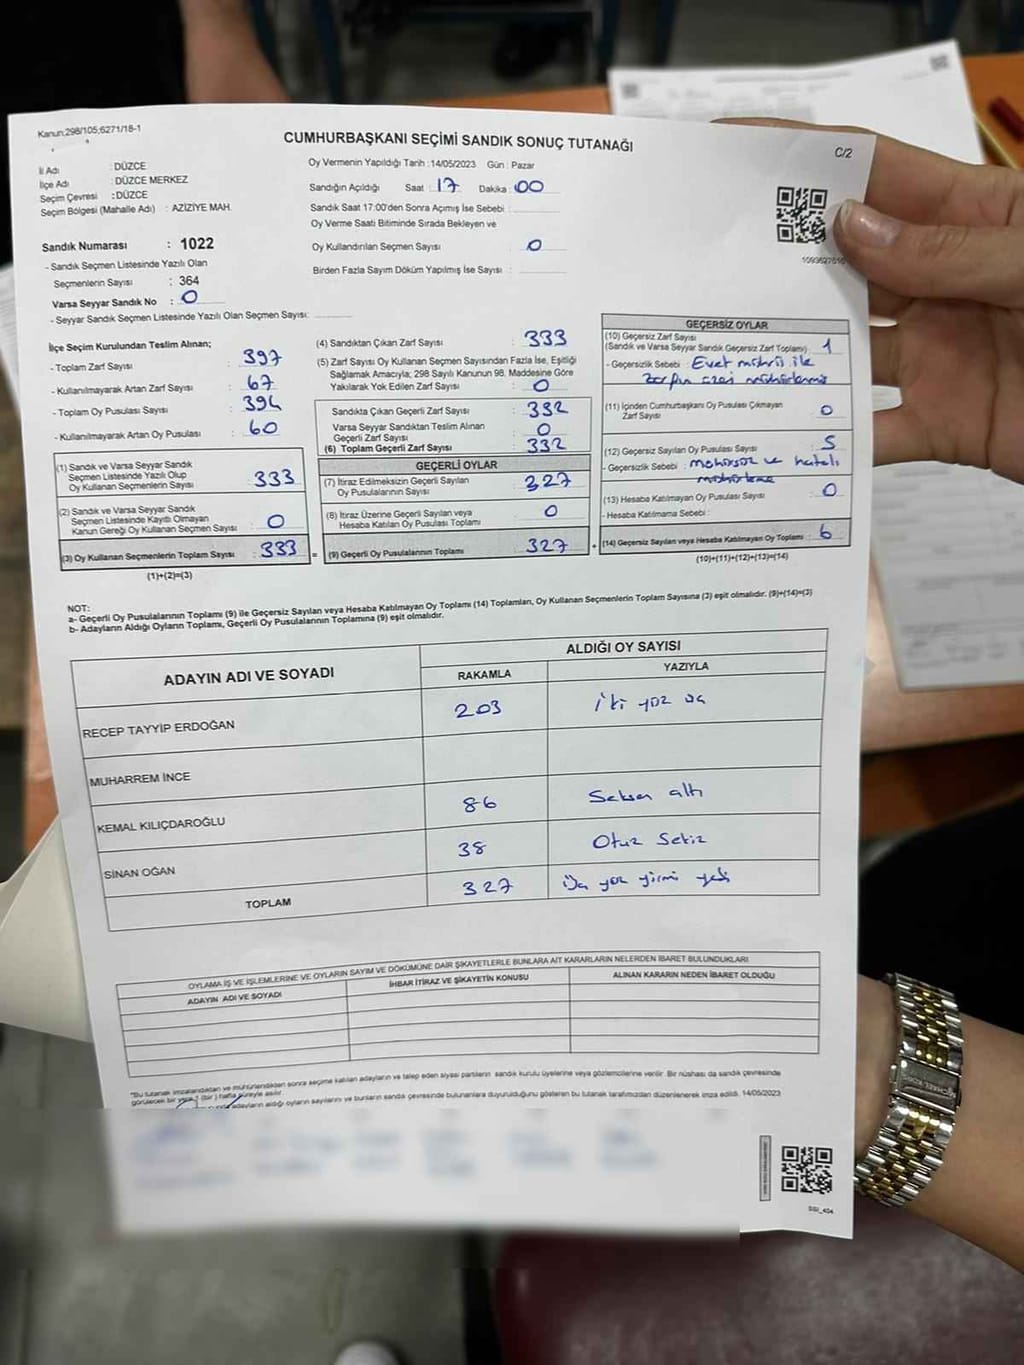 Kanun;298/105;6271/18-1
CUMHURBAŞKANI SEÇİMİ SANDIK SONUÇ TUTANAĞI
C/2
İl Adı : DÜZCE
İlçe Adı : DÜZCE MERKEZ
Seçim Çevresi : DÜZCE
Seçim Bölgesi (Mahalle Adı) : AZİZİYE MAH.
Oy Vermenin Yapıldığı Tarih : 14/05/2023 Gün : Pazar
Sandığın Açıldığı Saat : 17 Dakika : 00
Sandık Saat 17:00'den Sonra Açımış İse Sebebi :
Oy Verme Saati Bitiminde Sırada Bekleyen ve
Oy Kullandırılan Seçmen Sayısı : 0
Birden Fazla Sayım Döküm Yapılmış İse Sayısı :
1093627616
Sandık Numarası : 1022
- Sandık Seçmen Listesinde Yazılı Olan
Seçmenlerin Sayısı : 364
Varsa Seyyar Sandık No : 0
- Seyyar Sandık Seçmen Listesinde Yazılı Olan Seçmen Sayısı:
İlçe Seçim Kurulundan Teslim Alınan;
- Toplam Zarf Sayısı : 397
- Kullanılmayarak Artan Zarf Sayısı : 67
- Toplam Oy Pusulası Sayısı : 394
- Kullanılmayarak Artan Oy Pusulası : 60
(1) Sandık ve Varsa Seyyar Sandık
Seçmen Listesinde Yazılı Olup
Oy Kullanan Seçmenlerin Sayısı : 333
(2) Sandık ve Varsa Seyyar Sandık
Seçmen Listesinde Kayıtlı Olmayan
Kanun Gereği Oy Kullanan Seçmen Sayısı : 0
(3) Oy Kullanan Seçmenlerin Toplam Sayısı : 333 =
(1)+(2)=(3)
(4) Sandıktan Çıkan Zarf Sayısı : 333
(5) Zarf Sayısı Oy Kullanan Seçmen Sayısından Fazla İse, Eşitliği
Sağlamak Amacıyla; 298 Sayılı Kanunun 98. Maddesine Göre
Yakılarak Yok Edilen Zarf Sayısı : 0
Sandıkta Çıkan Geçerli Zarf Sayısı : 332
Varsa Seyyar Sandıktan Teslim Alınan
Geçerli Zarf Sayısı : 0
(6) Toplam Geçerli Zarf Sayısı : 332
GEÇERLİ OYLAR
(7) İtiraz Edilmeksizin Geçerli Sayılan
Oy Pusulalarının Sayısı : 327
(8) İtiraz Üzerine Geçerli Sayılan veya
Hesaba Katılan Oy Pusulası Toplamı : 0
(9) Geçerli Oy Pusulalarının Toplamı : 327 +
GEÇERSİZ OYLAR
(10) Geçersiz Zarf Sayısı
(Sandık ve Varsa Seyyar Sandık Geçersiz Zarf Toplamı) : 1
- Geçersizlik Sebebi : Evet mührü ile
zarfın üzeri mühürlenmiş
(11) İçinden Cumhurbaşkanı Oy Pusulası Çıkmayan
Zarf Sayısı : 0
(12) Geçersiz Sayılan Oy Pusulası Sayısı : 5
- Geçersizlik Sebebi : mühürsüz ve hatalı
mühürleme
(13) Hesaba Katılmayan Oy Pusulası Sayısı : 0
- Hesaba Katılmama Sebebi :
(14) Geçersiz Sayılan veya Hesaba Katılmayan Oy Toplamı : 6
(10)+(11)+(12)+(13)=(14)
NOT:
a- Geçerli Oy Pusulalarının Toplamı (9) ile Geçersiz Sayılan veya Hesaba Katılmayan Oy Toplamı (14) Toplamları, Oy Kullanan Seçmenlerin Toplam Sayısına (3) eşit olmalıdır. (9)+(14)=(3)
b- Adayların Aldığı Oyların Toplamı, Geçerli Oy Pusulalarının Toplamına (9) eşit olmalıdır.
ADAYIN ADI VE SOYADI
ALDIĞI OY SAYISI
RAKAMLA YAZIYLA
RECEP TAYYİP ERDOĞAN 203 İki yüz üç
MUHARREM İNCE
KEMAL KILIÇDAROĞLU 86 Seksen altı
SİNAN OĞAN 38 Otuz Sekiz
TOPLAM 327 Üç yüz yirmi yedi
OYLAMA İŞ VE İŞLEMLERİNE VE OYLARIN SAYIM VE DÖKÜMÜNE DAİR ŞİKAYETLERLE BUNLARA AİT KARARLARIN NELERDEN İBARET BULUNDUKLARI
ADAYIN ADI VE SOYADI İHBAR İTİRAZ VE ŞİKAYETİN KONUSU ALINAN KARARIN NEDEN İBARET OLDUĞU
*Bu tutanak imzalandıktan ve mühürlendikten sonra seçime katılan adayların ve talep eden siyasi partilerin sandık kurulu üyelerine veya gözlemcilerine verilir. Bir nüshası da sandık çevresinde
görülecek bir yere 1 (bir) hafta süreyle asılır.
adayların aldığı oyların sayılarını ve bunların sandık çevresinde bulunanlara duyurulduğunu gösteren bu tutanak tarafımızdan düzenlenerek imza edildi. 14/05/2023
MICHAEL KORS